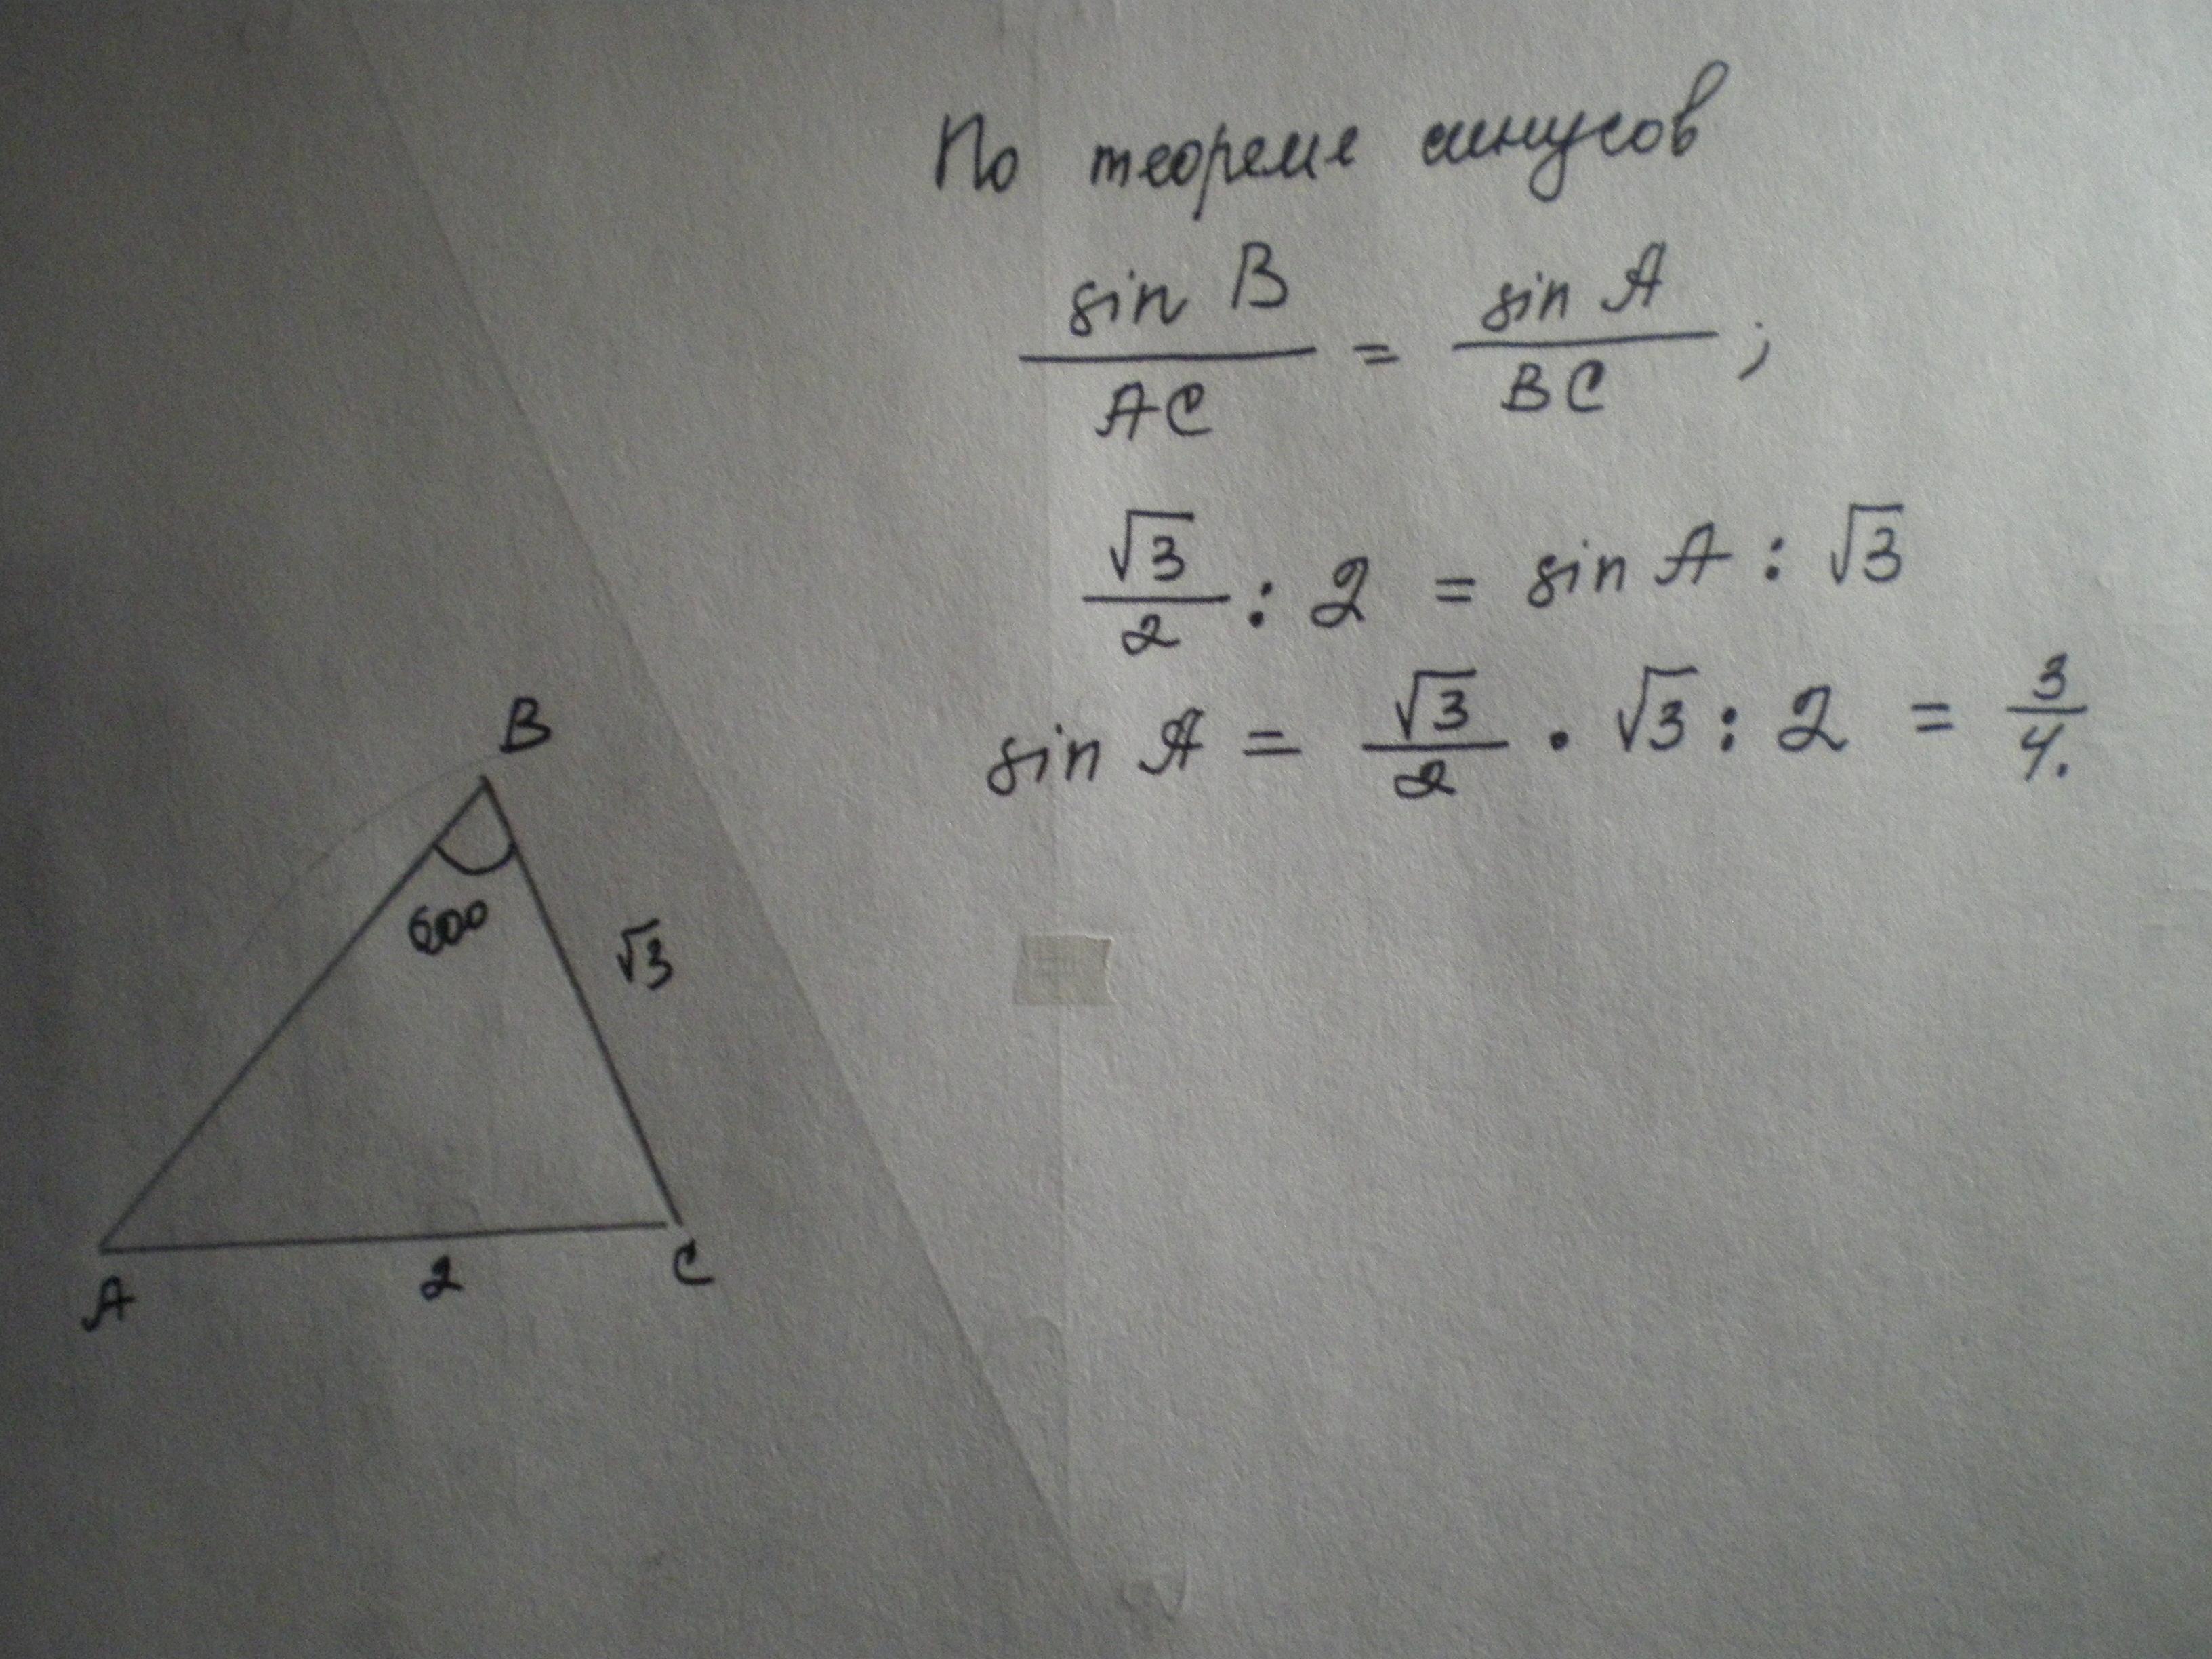 По теореме синусов
sin B / AC = sin A / BC ;
√3/2 : 2 = sin A : √3
sin A = √3/2 · √3 : 2 = 3/4.
B
60°
√3
A
2
C